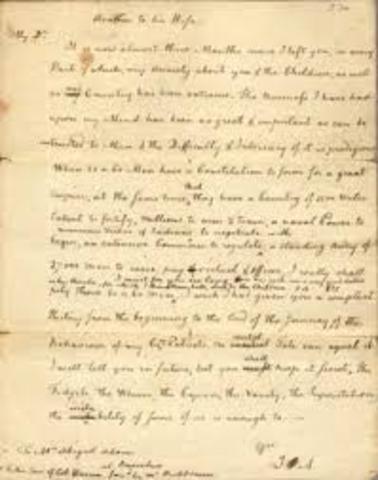 Another to his Wife.
My Dr.
It is now almost three Months since I left you, in every
Part of which, my Anxiety about you & the Children, as well
as my Country, has been extreme. The Business I have had
upon my Mind has been as great & important as can be
intrusted to Man & the Difficulty & Intricacy of it is prodigious
When 50 or 60 Men have a Constitution to form for a great
Empire, at the same time that they have a Country of 1500 Miles
Extent to fortify, Millions to arm & train, a naval Power to
begin, an extensive Commerce to regulate,
numerous Tribes of Indians to negotiate with
a standing Army of
27000 Men to raise, pay & Officer, I really shall
pity those 50 or 60 Men. I wish I had given you a compleat
History from the beginning to the End of the Journey, of the
Behaviour of my Compatriots. No Tale can equal it
I will tell you in future, but you shall keep it secret. The
Fidgets, the Whims, the Caprice, the Vanity, the Superstition
the of some of us is enough to
Yrs
J A
To Mrs. Abigail Adams
at Braintree